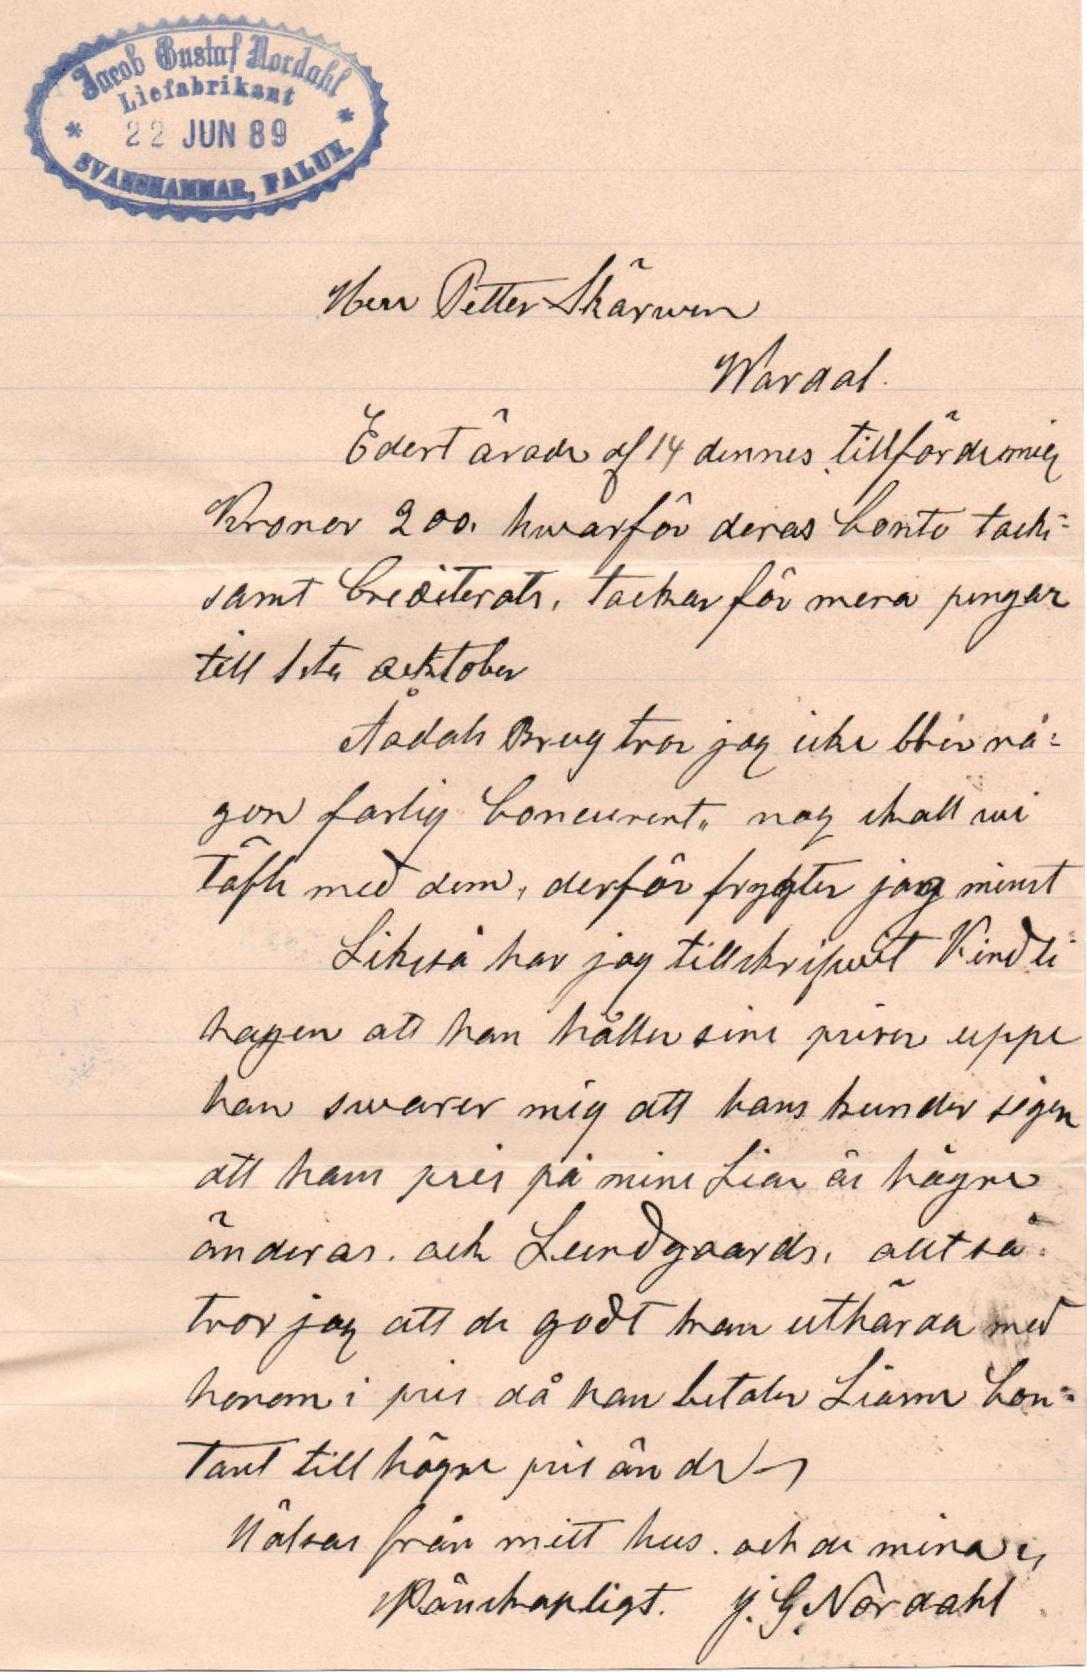 Jacob Gustaf Nordahl
Liefabrikant
* 22 JUN 89 *
SVANSHAMMAR, FALUN.
Herr Petter Skärwen
Wardal.
Edert ärade af 14 dennes tillförde mig
Kronor 200. hwarför deras Conto tack=
samt Crediterats, tackar för mera pengar
till 1sta october
Aadals Brug tror jag icke blir nå=
gon farlig Concurent,, nog skall wi
täfla med dem, derför frygter jag minst
Likså har jag tillskrifwit Kindli
hagen att han håller sine priser uppe
han swarer mig att hans kunder sigen
att hans pris på mine Liar är högre
än deras. och Lundgaards, alltså
tror jag att de godt kan uthärda med
honom i pris då han betaler Liarne Con=
tant till högre pris än de
Hälsas från mitt hus. och de mina
Wänskapligt. J. G. Nordahl